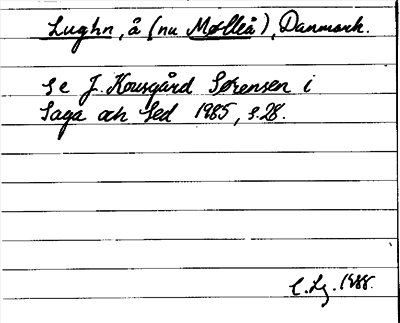 Lughn, å (nu Mølleå), Danmark.
se J. Kousgård Sørensen i
Saga och Sed 1985, s.28.
C.Lg. 1988.